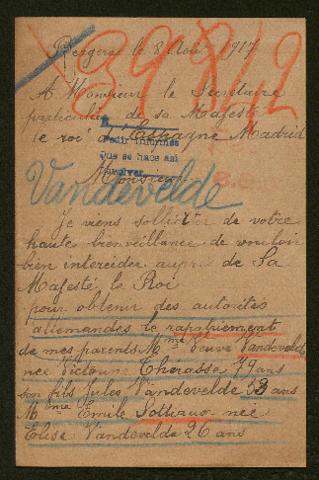 le 8 Aout 1917
39842
A Monsieur le Secrétaire
particulier de sa Majesté
le roi d'Espagne Madrid
Pedir informes
Que se hace así
Monsieur
Vandevelde
Je viens solliciter de votre
haute bienveillance de vouloir
bien interceder auprès de Sa
Majesté le Roi
pour obtenir des autorités
allemandes le rapatriement
de mes parents Mme Veuve Vandevelde
née Victorine Thérasse 79 ans
son fils Jules Vandevelde 53 ans
Mme Emile née
Elise Vandevelde 26 ans